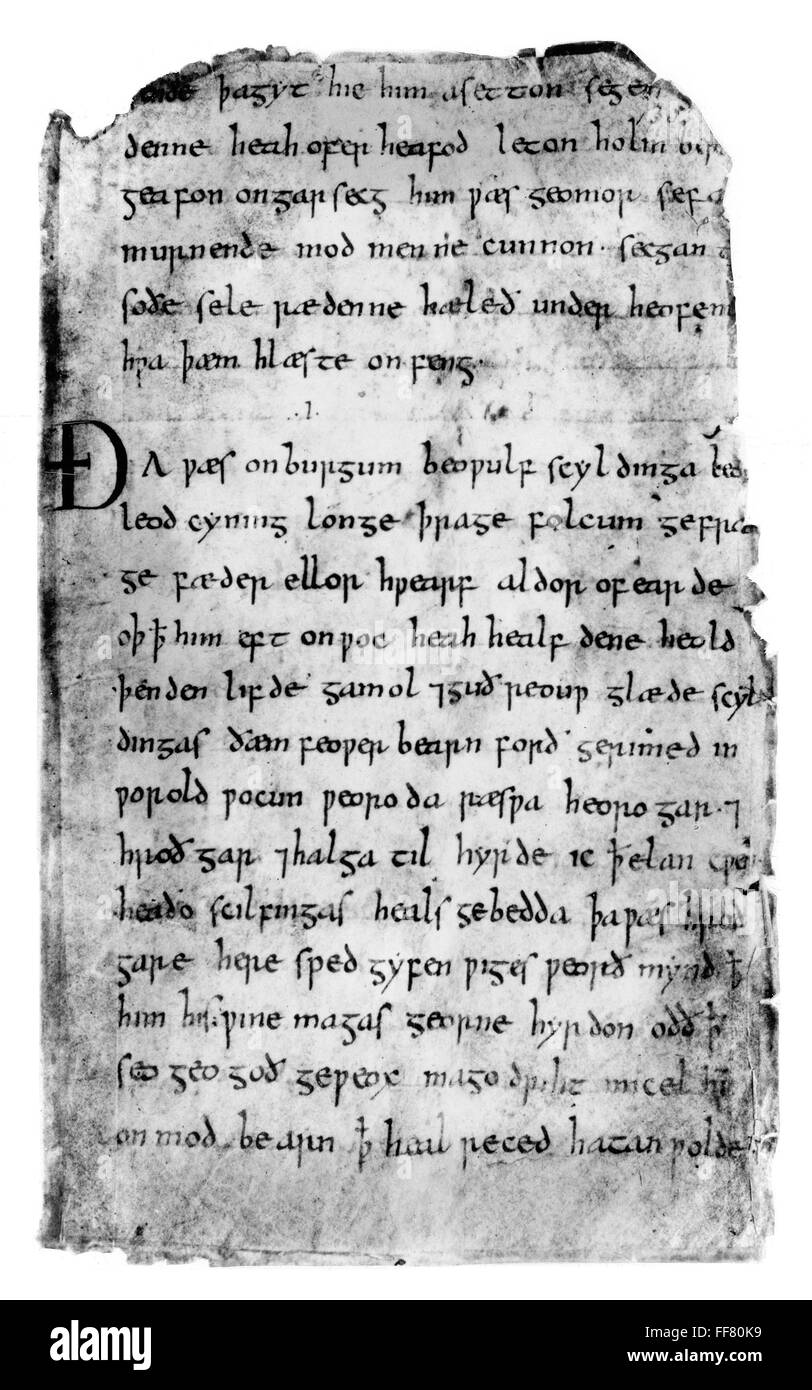 ende þagyt hie him asetton segen
denne heah ofer heafod leton holm ber
geafon on garsecg him ƿæs geomor sefa
murnende mod men ne cunnon · secgan
soðe sele rædenne hæleð under heofenu
hƿa þæm hlæste onfeng ·
· I ·
ÐA ƿæs on burgum beoƿulf scyldinga
leod cyning longe þrage folcum gefræ
ge fæder ellor hƿearf aldor of earde
oþ ꝥ him eft onƿoc heah healfdene heold
þenden lifde gamol ⁊ guð reouƿ glæde scyl
dingas ðæm feoƿer bearn forð gerimed in
ƿorold ƿocun ƿeoroda ræsƿa heorogar · ⁊
hroðgar ⁊ halga til hyrde ic ꝥ elan cƿen
heaðo scilfingas heals gebedda þa ƿæs hroð
gare here sped gyfen ƿiges ƿeorð mynd ꝥ
him his ƿine magas georne hyrdon oðð ꝥ
seo geogoð geƿeox mago driht micel him
on mod bearn ꝥ heal reced hatan ƿolde
alamy
alamy
alamy
Image ID: FF80K9
www.alamy.com